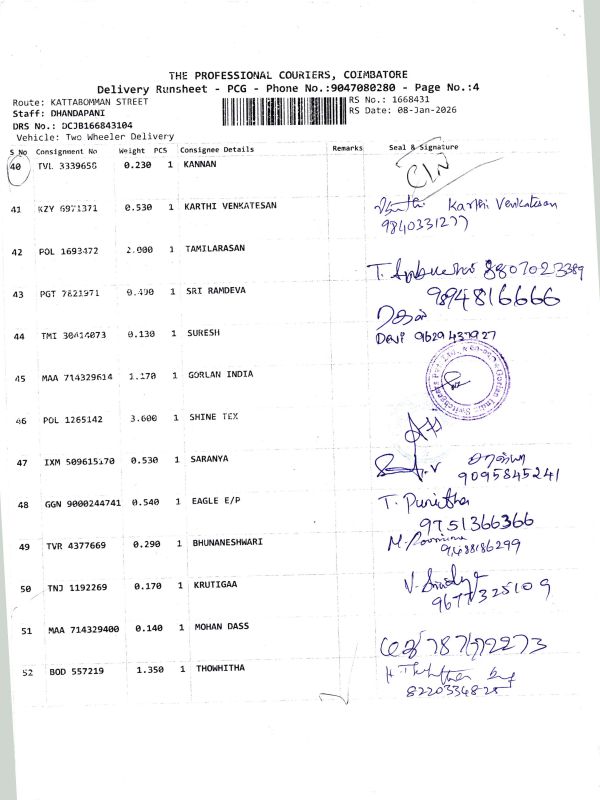 THE PROFESSIONAL COURIERS, COIMBATORE
Delivery Runsheet - PCG - Phone No.:9047080280 - Page No.:4
Route: KATTABOMMAN STREET RS No.: 1668431
Staff: DHANDAPANI RS Date: 08-Jan-2026
DRS No.: DCJB166843104
Vehicle: Two Wheeler Delivery
S No Consignment No Weight PCS Consignee Details Remarks Seal & Signature
40 TVL 3339658 0.230 1 KANNAN
41 KZY 6971371 0.530 1 KARTHI VENKATESAN Karthi Venkatesan
9840331277
42 POL 1693472 2.000 1 TAMILARASAN
8807023389
43 PGT 7821971 0.490 1 SRI RAMDEVA 9894816666
44 TMI 30414073 0.130 1 SURESH Devi
45 MAA 714329614 1.170 1 GORLAN INDIA
46 POL 1265142 3.600 1 SHINE TEX
47 IXM 509615170 0.530 1 SARANYA
9095845241
48 GGN 9000244741 0.540 1 EAGLE E/P T. Punitha
9751366366
49 TVR 4377669 0.290 1 BHUNANESHWARI
9488186299
50 TNJ 1192269 0.170 1 KRUTIGAA
51 MAA 714329400 0.140 1 MOHAN DASS
52 BOD 557219 1.350 1 THOWHITHA